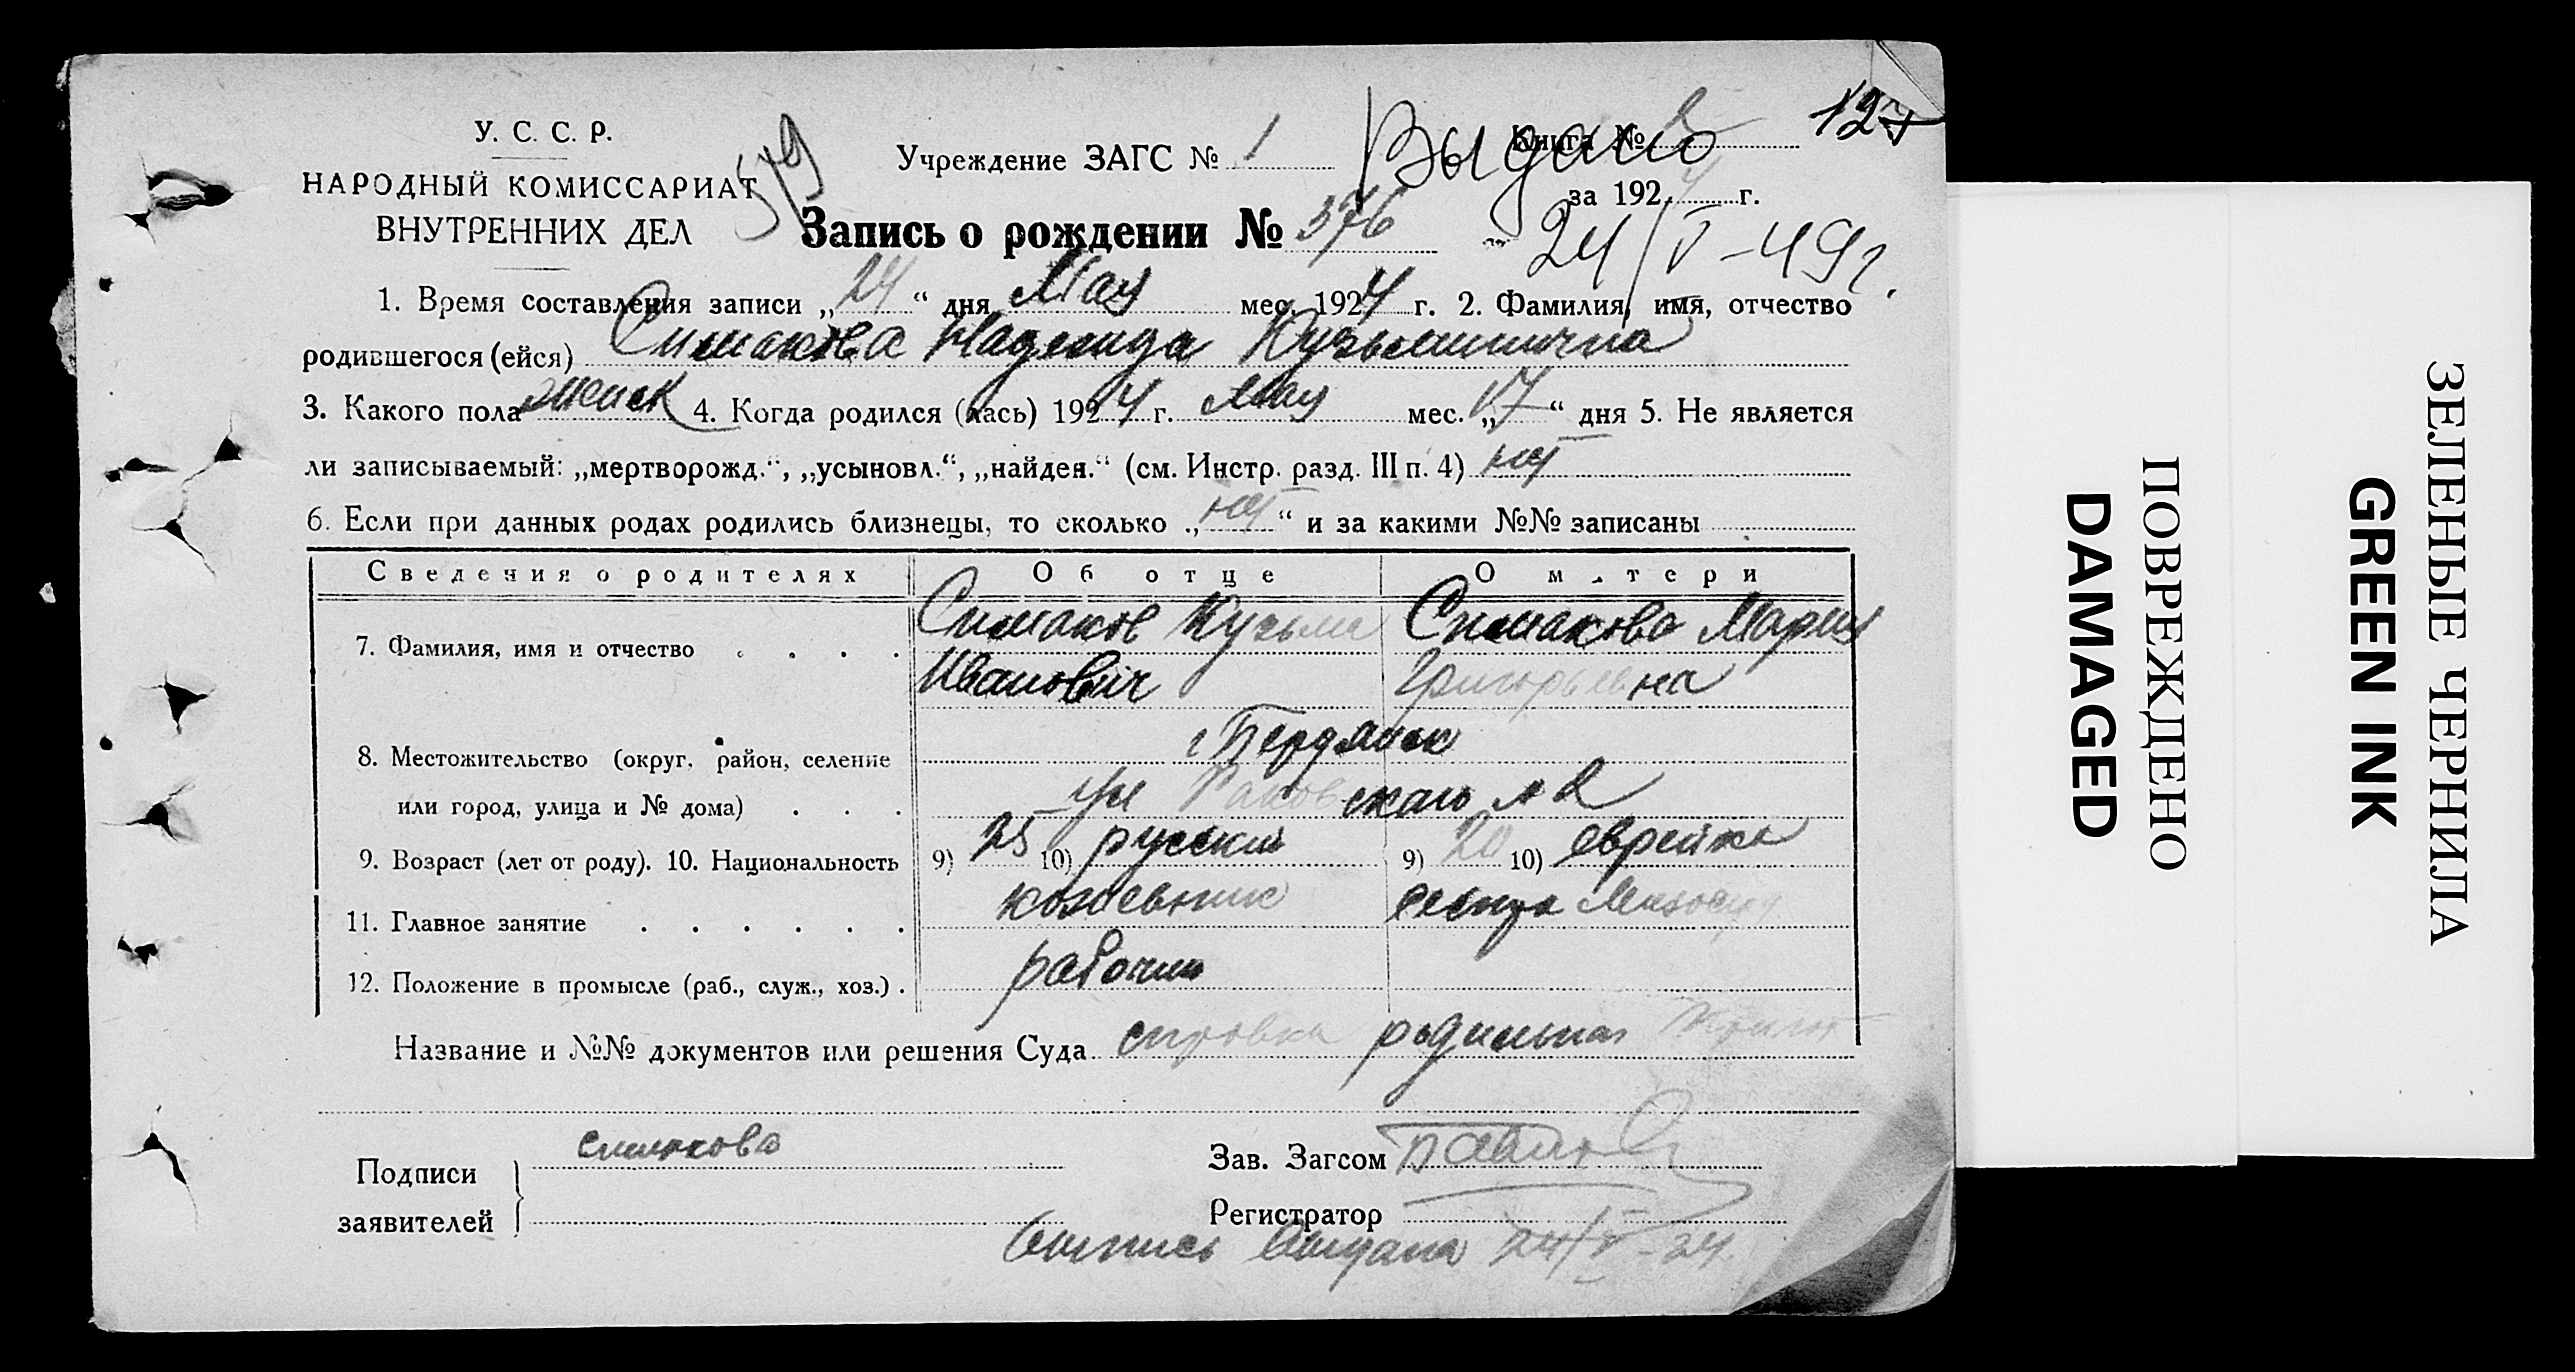 У. С. С. Р.
НАРОДНЫЙ КОМИССАРИАТ
ВНУТРЕННИХ ДЕЛ
579
Учреждение ЗАГС № 1
Книга № 2
127
Выдано
за 1924 г.
24/V-49 г.
Запись о рождении № 376
1. Время составления записи „24“ дня Мая мес. 1924 г. 2. Фамилия, имя, отчество
родившегося (ейся) Симакова Надежда Кузьминична
3. Какого пола женск 4. Когда родился (лась) 1924 г. Мая мес. „17“ дня 5. Не является
ли записываемый: „мертворожд.“, „усыновл.“, „найден.“ (см. Инстр. разд. III п. 4) нет
6. Если при данных родах родились близнецы, то сколько „нет“ и за какими №№ записаны
Сведения о родителях Об отце О матери
7. Фамилия, имя и отчество . . . . Симаков Кузьма Симакова Мария
Иванович Григорьевна
8. Местожительство (округ, район, селение г Бердянск
или город, улица и № дома) . . . ул Раковскаго № 2
9. Возраст (лет от роду). 10. Национальность 9) 25 10) русский 9) 20 10) еврейка
11. Главное занятие . . . . . . кожевник
12. Положение в промысле (раб., служ., хоз.) . рабочий
Название и №№ документов или решения Суда справка родильнаг
Подписи
заявителей
симакова
Зав. Загсом
Регистратор
Выпись выдана 24/V-24.
ПОВРЕЖДЕНО
DAMAGED
ЗЕЛЕНЫЕ ЧЕРНИЛА
GREEN INK